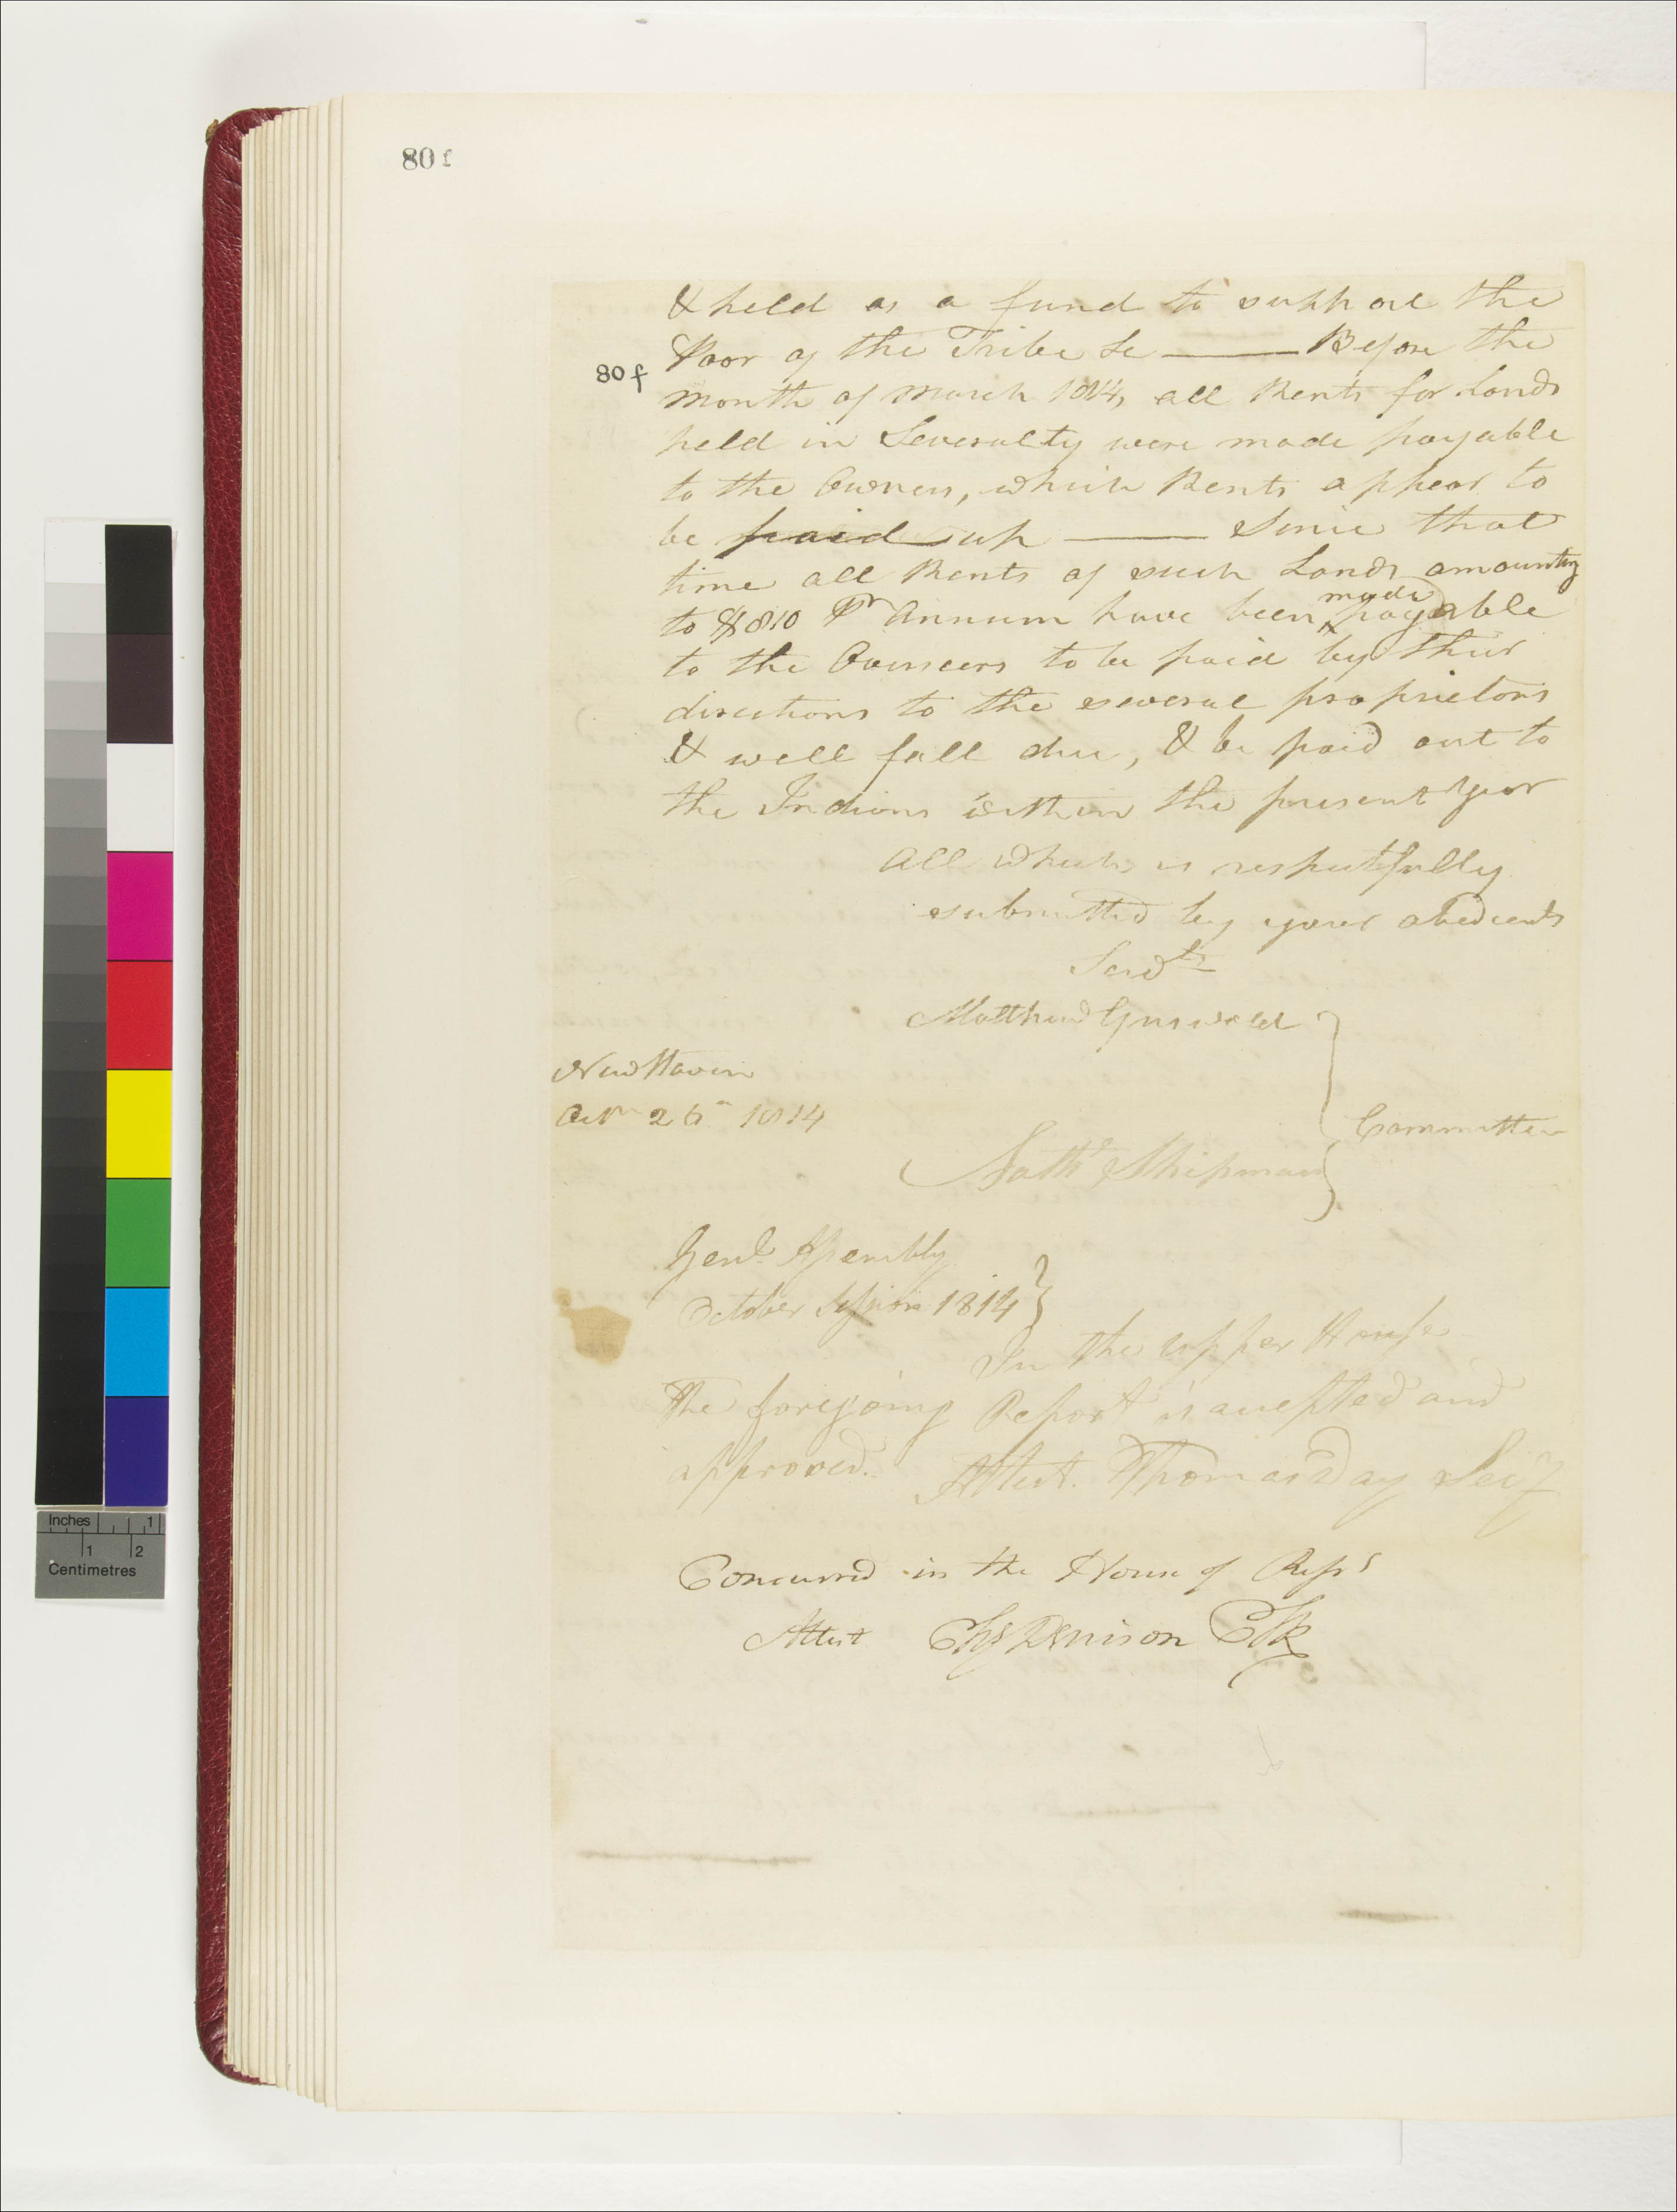 80 f
& held as a fund to support the
80 f
Poor of the Tribe &c —— Before the
month of March 1814, all Rents for Lands
held in Severalty were made payable
to the Owners, which Rents appear to
be paid up —— Since that
time all Rents of such Lands amounting
to $810 Pr Annum have been made payable
to the Overseers to be paid by their
directions to the several proprietors
& will fall due, & be paid out to
the Indians within the present year
All which is respectfully
submitted by your obedients
Servts
Matthew Griswold
New Haven
Octr 26th 1814
Committee
Nathl Shipman
Genl Assembly
October Session 1814
In the Upper House
The foregoing Report is accepted and
approved. Attest. Thomas Day Secy
Concurred in the House of Reps
Attest Chs Denison Clk
Inches 1
1 2
Centimetres